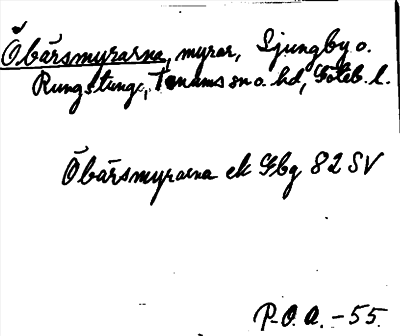 Öbärsmyrarna, myrar, Ljungby o.
Rungstunge, Tanums sn o. hd, Göteb. l.
Öbärsmyrarna ek Gbg 82 SV
P.O.A. -55.